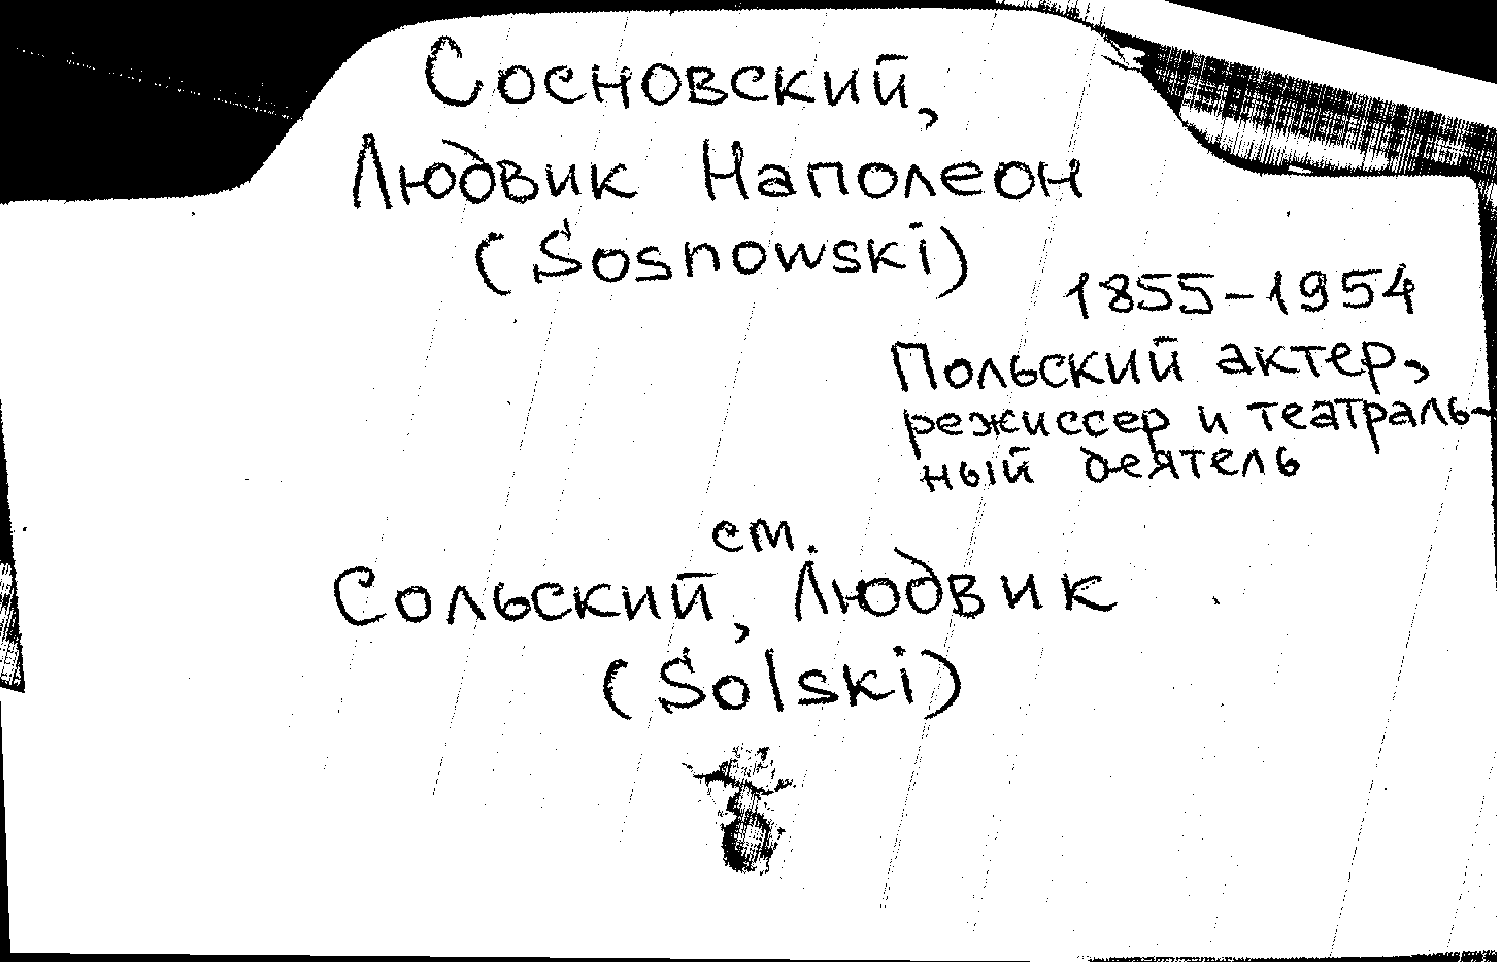 Сосновский,
Людвик Наполеон
(Sosnowski)
1855-1954
Польский актер,
режиссер и театраль-
ный деятель
см.
Сольский, Людвик
(Solski)